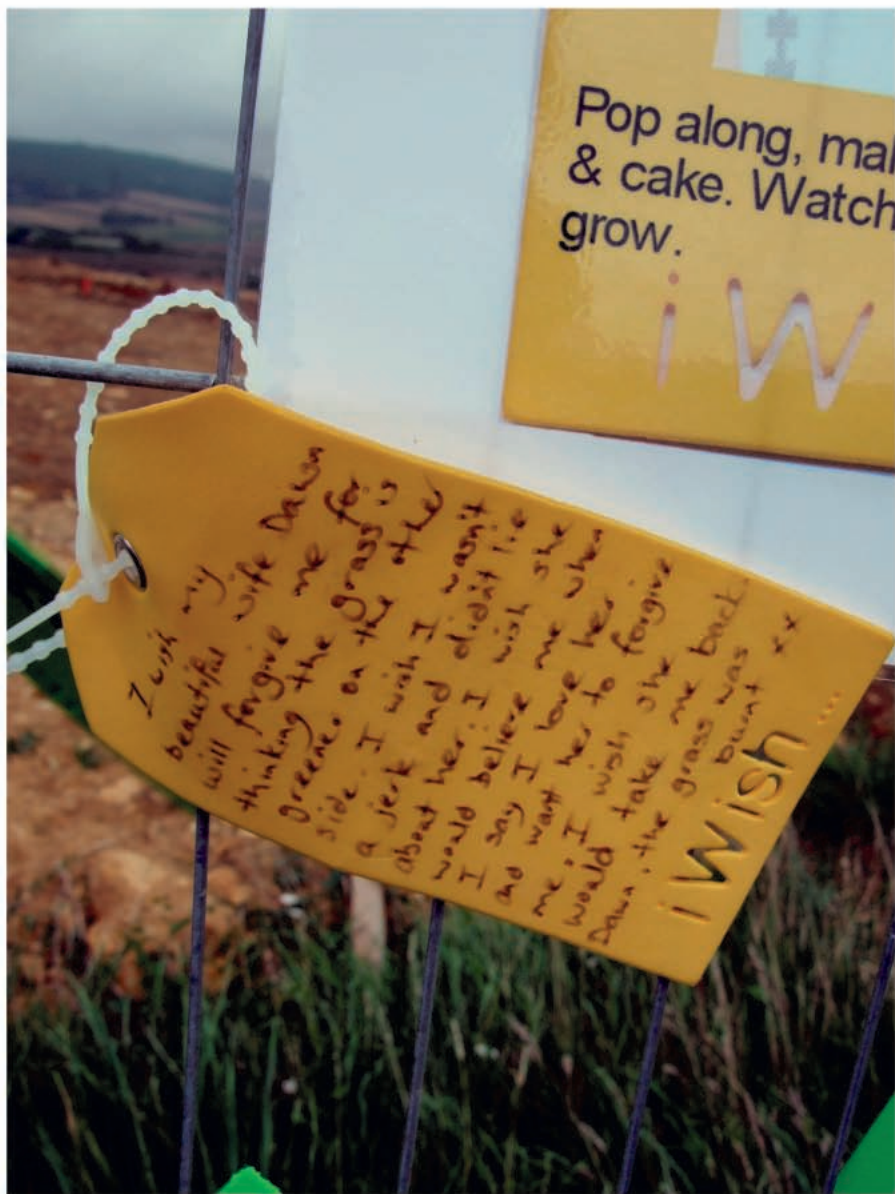 Pop along, mal
& cake. Watch
grow.
i W
I wish my
beautiful wife Dawn
will forgive me for
thinking the grass is
greener on the other
side. I wish I wasn't
a jerk and didn't lie
about her. I wish she
would believe me when
I say I love her
and want her to forgive
me. I wish she
would take me back.
Dawn, the grass was
burnt xx
i Wish ...